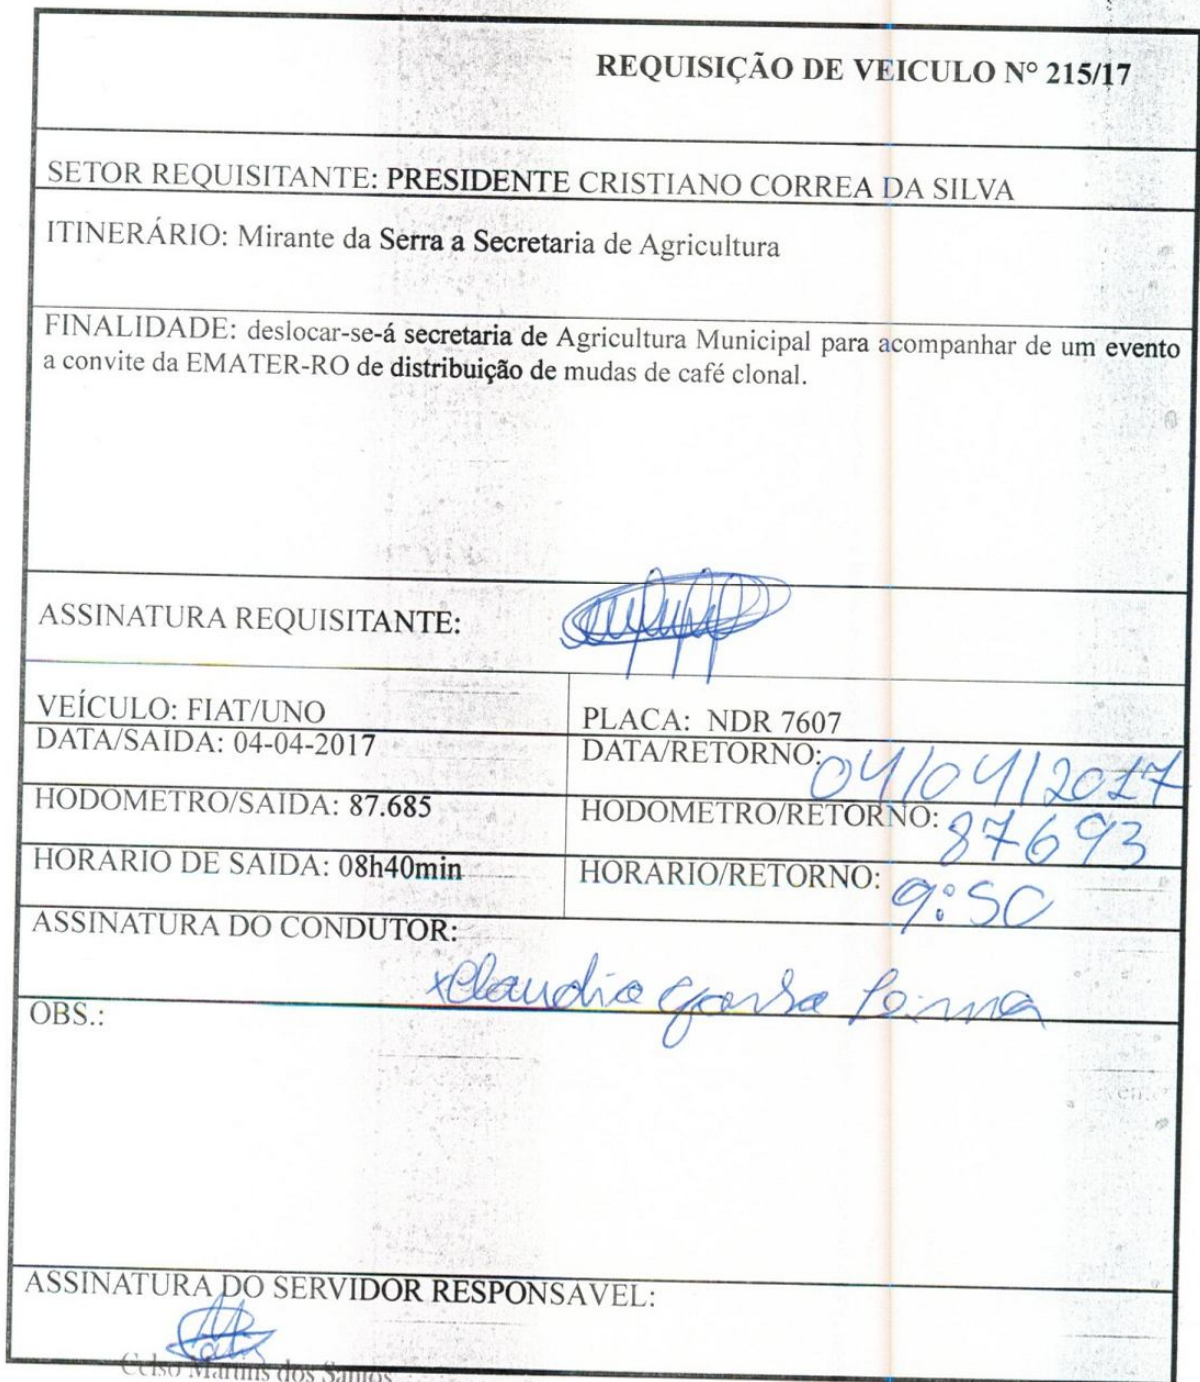 REQUISIÇÃO DE VEICULO Nº 215/17
SETOR REQUISITANTE: PRESIDENTE CRISTIANO CORREA DA SILVA
ITINERÁRIO: Mirante da Serra a Secretaria de Agricultura
FINALIDADE: deslocar-se-á secretaria de Agricultura Municipal para acompanhar de um evento
a convite da EMATER-RO de distribuição de mudas de café clonal.
ASSINATURA REQUISITANTE:
VEÍCULO: FIAT/UNO PLACA: NDR 7607
DATA/SAIDA: 04-04-2017 DATA/RETORNO: 04/04/2017
HODOMETRO/SAIDA: 87.685 HODOMETRO/RETORNO: 87693
HORARIO DE SAIDA: 08h40min HORARIO/RETORNO: 9:50
ASSINATURA DO CONDUTOR:
Claudio
OBS.:
ASSINATURA DO SERVIDOR RESPONSAVEL:
Celso Martins dos Santos